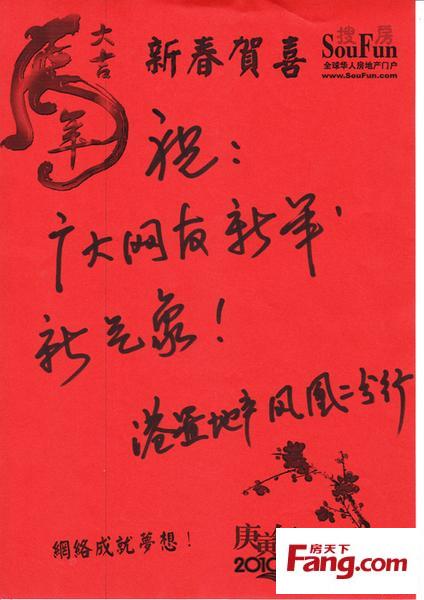 虎年
大吉
新春賀喜
搜房
SouFun
全球华人房地产门户
www.SouFun.com
祝：
广大网友新年，
新气象！
港置地产凤凰二分行
網絡成就夢想！
庚寅
2010
房天下
Fang.com